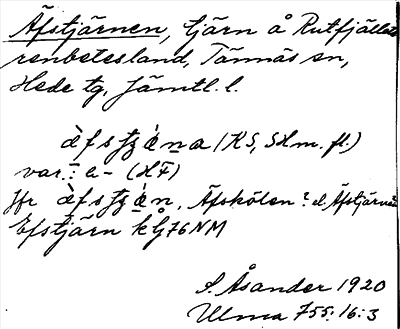 Äfstjärnen, tjärn å Rutfjällets
renbetesland, Tännäs sn,
Hede tg, Jämtl. l.
(KS, SHm. fl.)
var.: e- (HF)
Jfr Äfskölen? el. Äfstjärnen?
Efstjärn k G76NM
S. Åsander 1920
Ulma 755:16:3